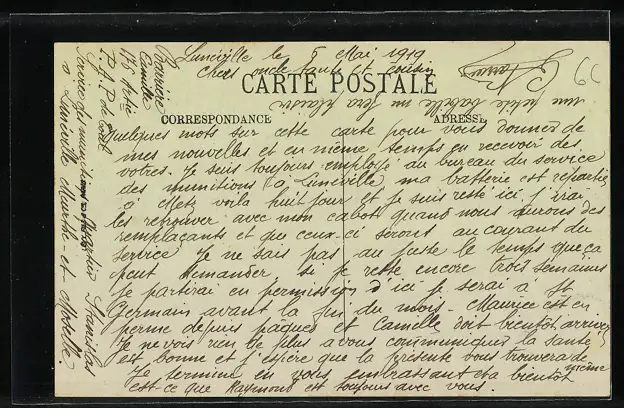 Lunéville le 5 Mai 1919
Chers oncle tante et cousin
CARTE POSTALE
CORRESPONDANCE
ADRESSE
Quelques mots sur cette carte pour vous donner de
mes nouvelles et en même temps en recevoir des
votres. Je suis toujours employé au bureau du service
des munitions (à Lunéville) ma batterie est repartie
à Metz voila huit jour et je suis resté ici j'irai
les retrouver avec mon cabot quand nous aurons des
remplaçants et que ceux-ci seront au courant du
service Je ne sais pas au juste le temps que ça
peut demander, si je reste encore trois semaines
je partirai en permission d'ici je serai à St
Germain avant la fin du mois. Maurice est en
perme depuis pâques et Camille doit bientôt arriver
Je ne vois rien de plus a vous communiquer la santé
est bonne et j'espère que la présente vous trouvera de même
Je termine en vous embrassant a bientot
est-ce que Raymond est toujours avec vous.
une petite babelle me fera plaisir
Barrière
Camille
176 Artie
P. A. P. de
Service des munitions Quartier Stanislas
à Lunéville Meurthe-et-Moselle.